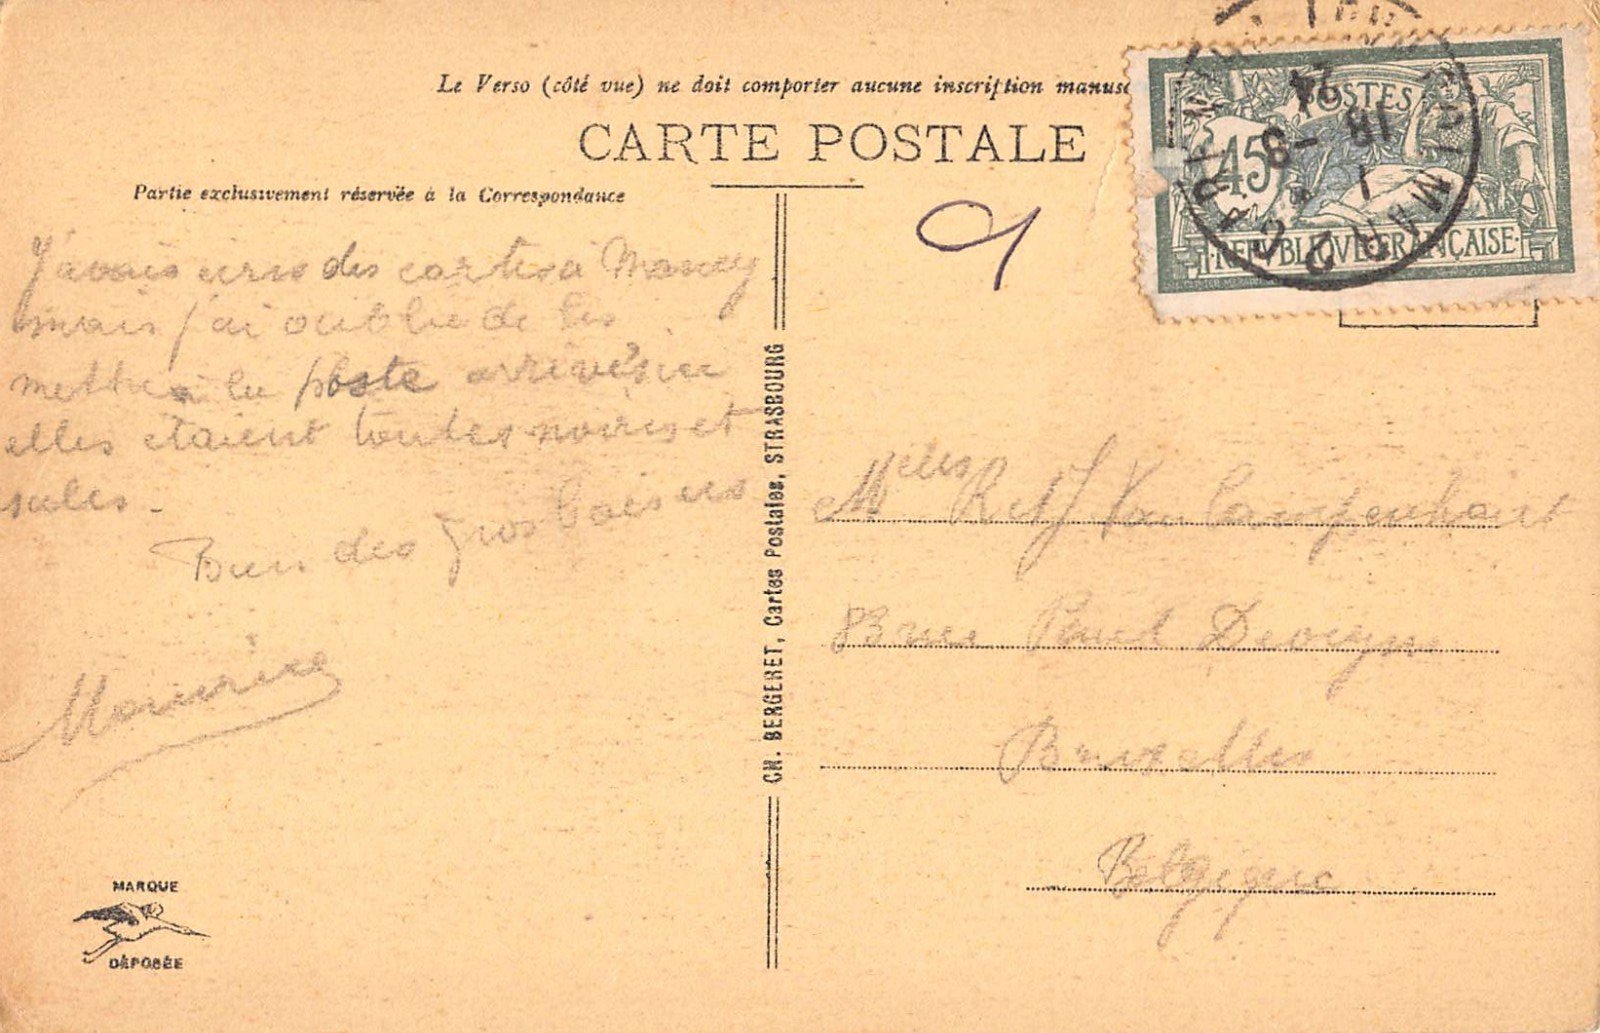 Le Verso (côté vue) ne doit comporter aucune inscription manusc
CARTE POSTALE
Partie exclusivement réservée à la Correspondance
POSTES
45
REPUBLIQUE FRANÇAISE
24
-8
18
COLMAR
J'avais des cartes à
mais j'ai oublié de les
mettre à la poste arrivés
elles étaient toutes noires et
sales.
Bien des gros baisers
Maurice
CH. BERGERET, Cartes Postales, STRASBOURG
Melles Van Campenhout
83 rue Paul
Bruxelles
Belgique
MARQUE
DÉPOSÉE